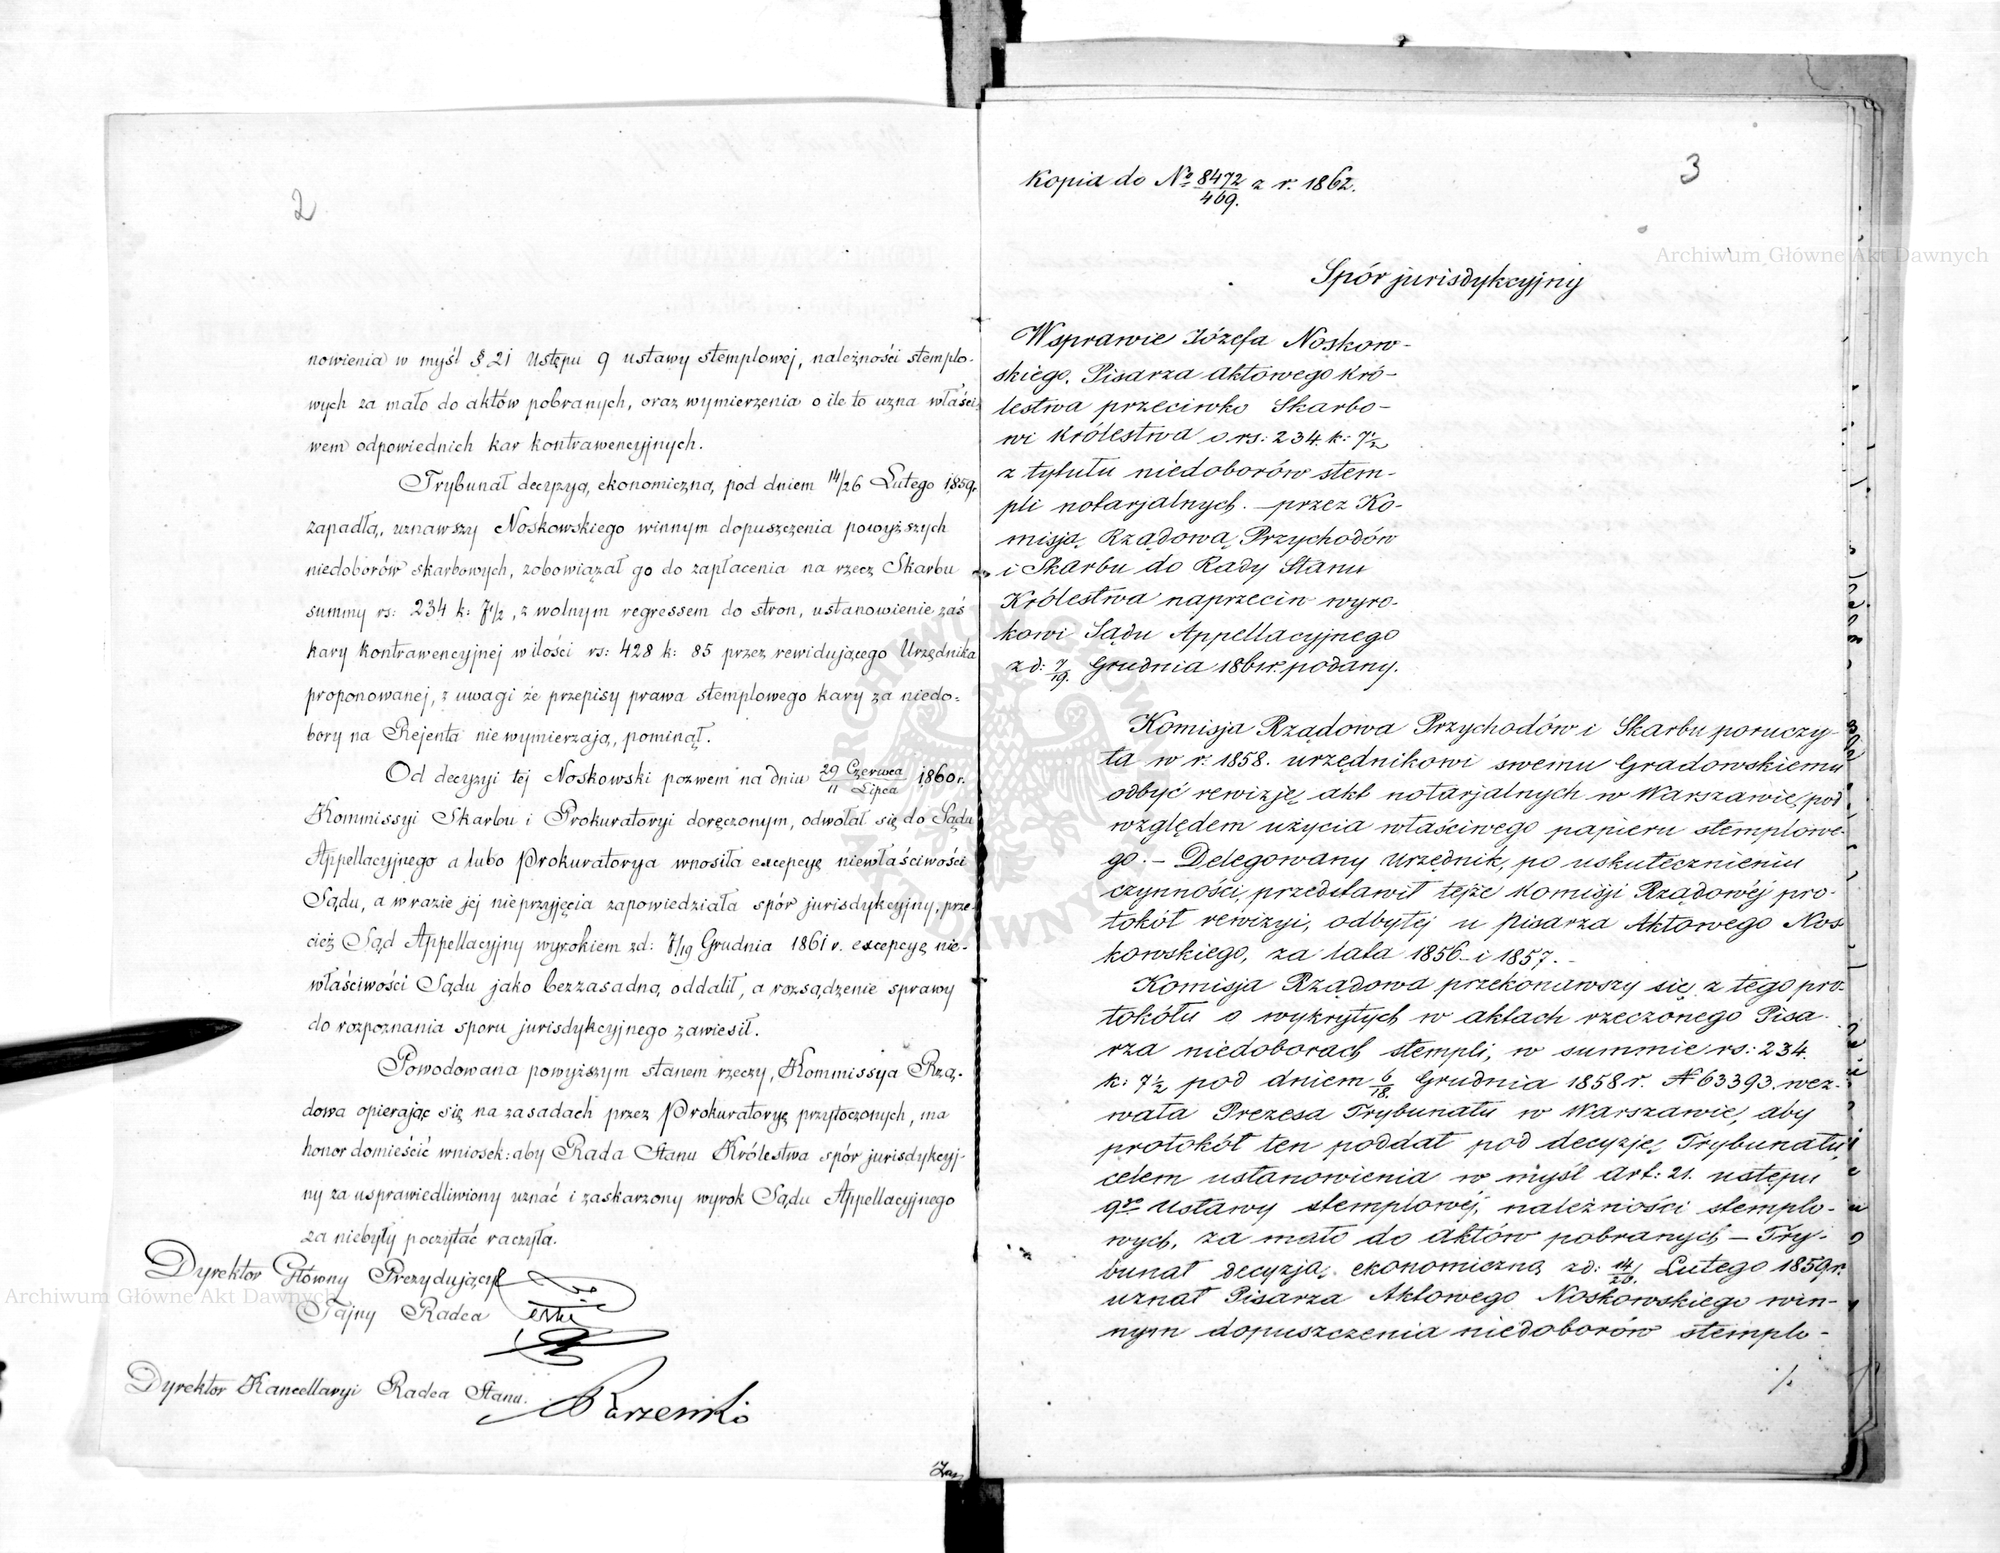 2
nowienia w myśl § 21 Ustępu 9 ustawy stemplowej, należności stemplo-
wych za mało do aktów pobranych, oraz wymierzenia o ile to uzna właści
wem odpowiednich kar kontrawencyjnych.
Trybunał decyzyą ekonomiczną, pod dniem 14/26 Lutego 1859r.
zapadłą, uznawszy Noskowskiego winnym dopuszczenia powyższych
niedoborów skarbowych, zobowiązał go do zapłacenia na rzecz Skarbu
summy rs: 234 k: 7 1/2, z wolnym regressem do stron, ustanowienie zaś
kary kontrawencyjnej w ilości rs: 428 k: 85 przez rewidującego Urzędnika
proponowanej, z uwagi że przepisy prawa stemplowego kary za niedo-
bory na Rejenta niewymierzają, pominął.
Od decyzyi tej Noskowski pozwem na dniu 29 Czerwca/11 Lipca 1860r.
Kommissyi Skarbu i Prokuratoryi doręczonym, odwołał się do Sądu
Appellacyjnego a lubo Prokuratorya wnosiła excepcyę niewłaściwości
Sądu, a w razie jej nieprzyjęcia zapowiedziała spór jurisdykcyjny, prze-
cież Sąd Appellacyjny wyrokiem zd: 7/19 Grudnia 1861 r. excepcyę nie-
właściwości Sądu jako bezzasadną oddalił, a rozsądzenie sprawy
do rozpoznania sporu jurisdykcyjnego zawiesił.
Powodowana powyższym stanem rzeczy, Kommissya Rzą-
dowa opierając się na zasadach przez Prokuratoryę przytoczonych, ma
honor domieścić wniosek: aby Rada Stanu Królestwa spór jurisdykcyj-
ny za usprawiedliwiony uznać i zaskarżony wyrok Sądu Appellacyjnego
za niebyły poczytać raczyła.
Dyrektor Główny Prezydujący
Tajny Radca
Dyrektor Kancellaryi Radca Stanu.
3
Kopia do № 8472/469. z r. 1862.
Spór jurisdykcyjny
W sprawie Józefa Noskow-
skiego, Pisarza Aktowego Kró-
lestwa przeciwko Skarbo-
wi Królestwa o rs: 234 k: 7 1/2
z tytułu niedoborów stem-
pli notarjalnych. — przez Ko-
misją Rządową Przychodów
i Skarbu do Rady Stanu
Królestwa naprzeciw wyro-
kowi Sądu Appellacyjnego
z d: 7/19. Grudnia 1861r. podany.
Komisja Rządowa Przychodów i Skarbu poruczy-
ła w r. 1858. urzędnikowi swemu Gradowskiemu
odbyć rewizję akt notarjalnych w Warszawie, pod
względem użycia właściwego papieru stemplowe-
go. — Delegowany Urzędnik, po uskutecznieniu
czynności, przedstawił tejże Komisji Rządowéj pro-
tokół rewizyi, odbytéj u Pisarza Aktowego Nos
kowskiego, za lata 1856 i 1857.
Komisja Rządowa przekonawszy się z tego pro-
tokółu o wykrytych w aktach rzeczonego Pisa-
rza niedoborach stempli, w summie rs: 234.
k: 7 1/2, pod dniem 6/18. Grudnia 1858 r. № 63393. wez-
wała Prezesa Trybunału w Warszawie, aby
protokół ten poddał pod decyzję Trybunału,
celem ustanowienia w myśl art: 21. ustępu
9go Ustawy stemplowéj, należności stemplo-
wych, za mało do aktów pobranych — Try-
bunał decyzją ekonomiczną zd: 14/26. Lutego 1859r.
uznał Pisarza Aktowego Noskowskiego win-
nym dopuszczenia niedoborów stemplo-
Archiwum Główne Akt Dawnych
Archiwum Główne Akt Dawnych